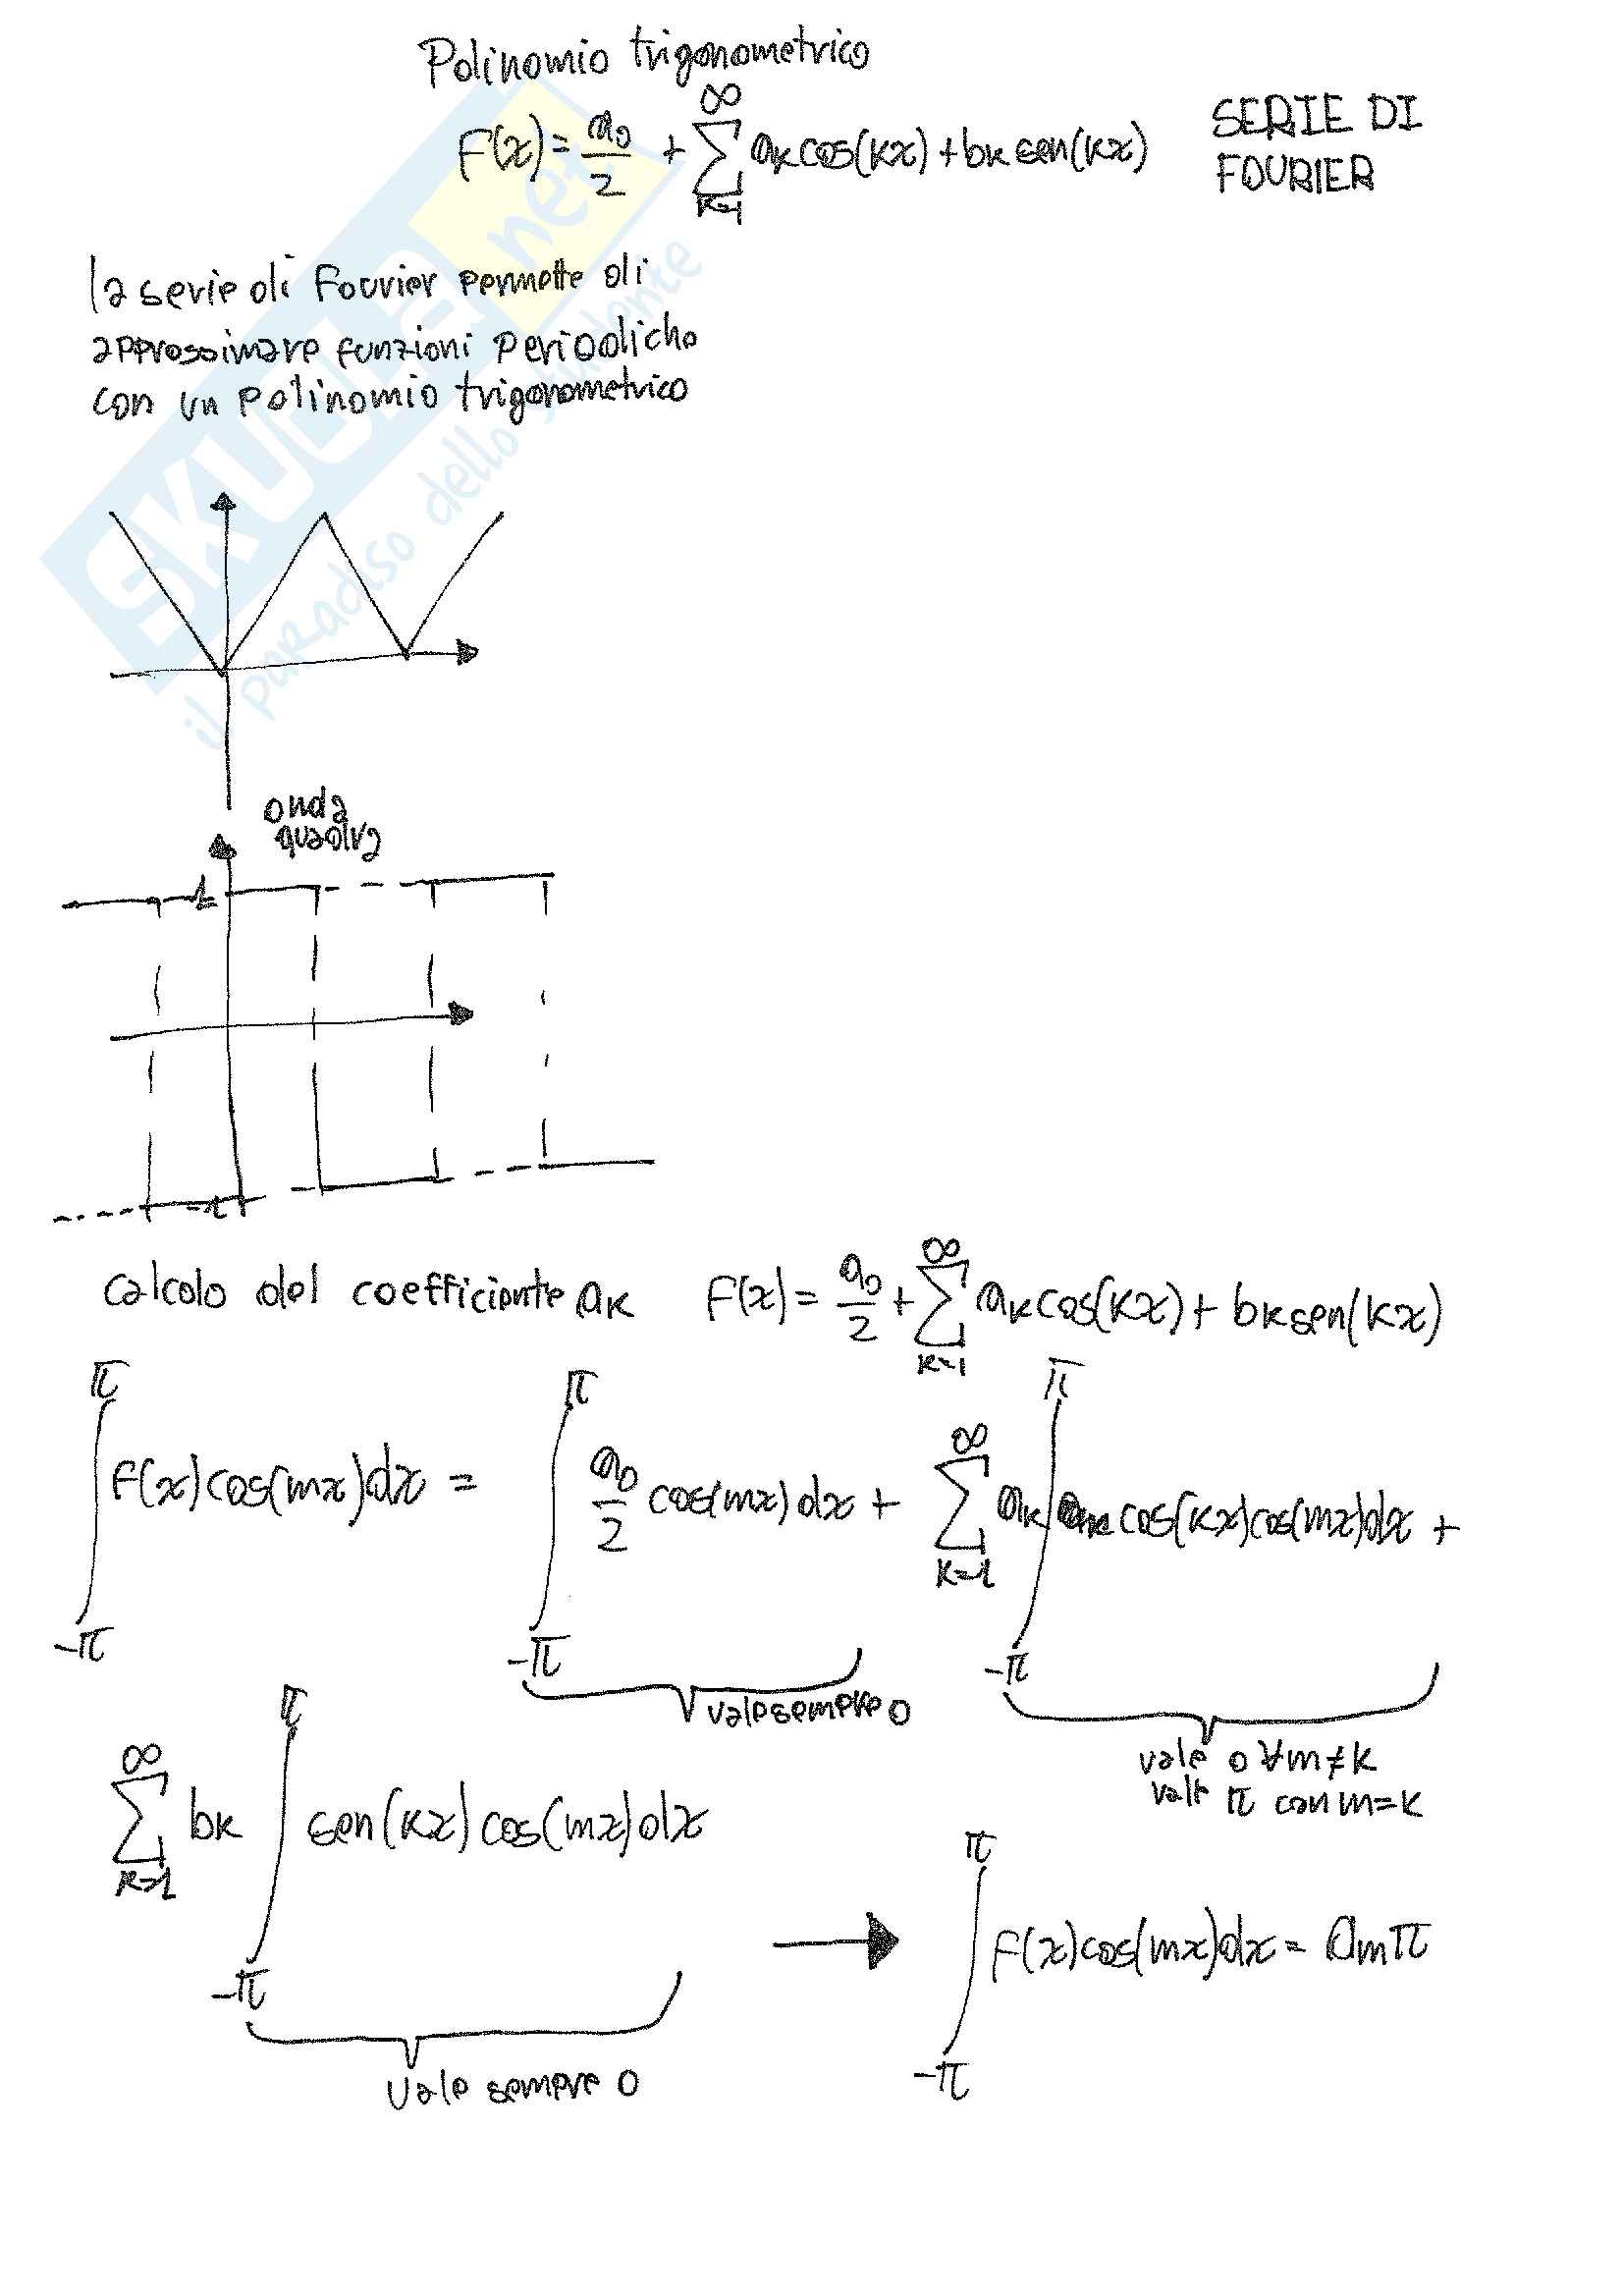 Polinomio trigonometrico
F(x) = a₀/2 + ∑_{k=1}^{∞} aₖ cos(kx) + bₖ sen(kx)
SERIE DI
FOURIER
la serie di Fourier permette di
approssimare funzioni periodiche
con un polinomio trigonometrico
SKUOLA.net
il paradiso dello studente
onda
quadra
1
-1
calcolo del coefficiente aₖ F(x) = a₀/2 + ∑_{k=1}^{∞} aₖ cos(kx) + bₖ sen(kx)
∫_{-π}^{π} F(x) cos(mx) dx = ∫_{-π}^{π} a₀/2 cos(mx) dx + ∑_{k=1}^{∞} aₖ ∫_{-π}^{π} cos(kx) cos(mx) dx +
vale sempre 0
vale 0 ∀m≠k
vale π con m=k
∑_{k=1}^{∞} bₖ ∫_{-π}^{π} sen(kx) cos(mx) dx
vale sempre 0
→ ∫_{-π}^{π} F(x) cos(mx) dx = aₘ π